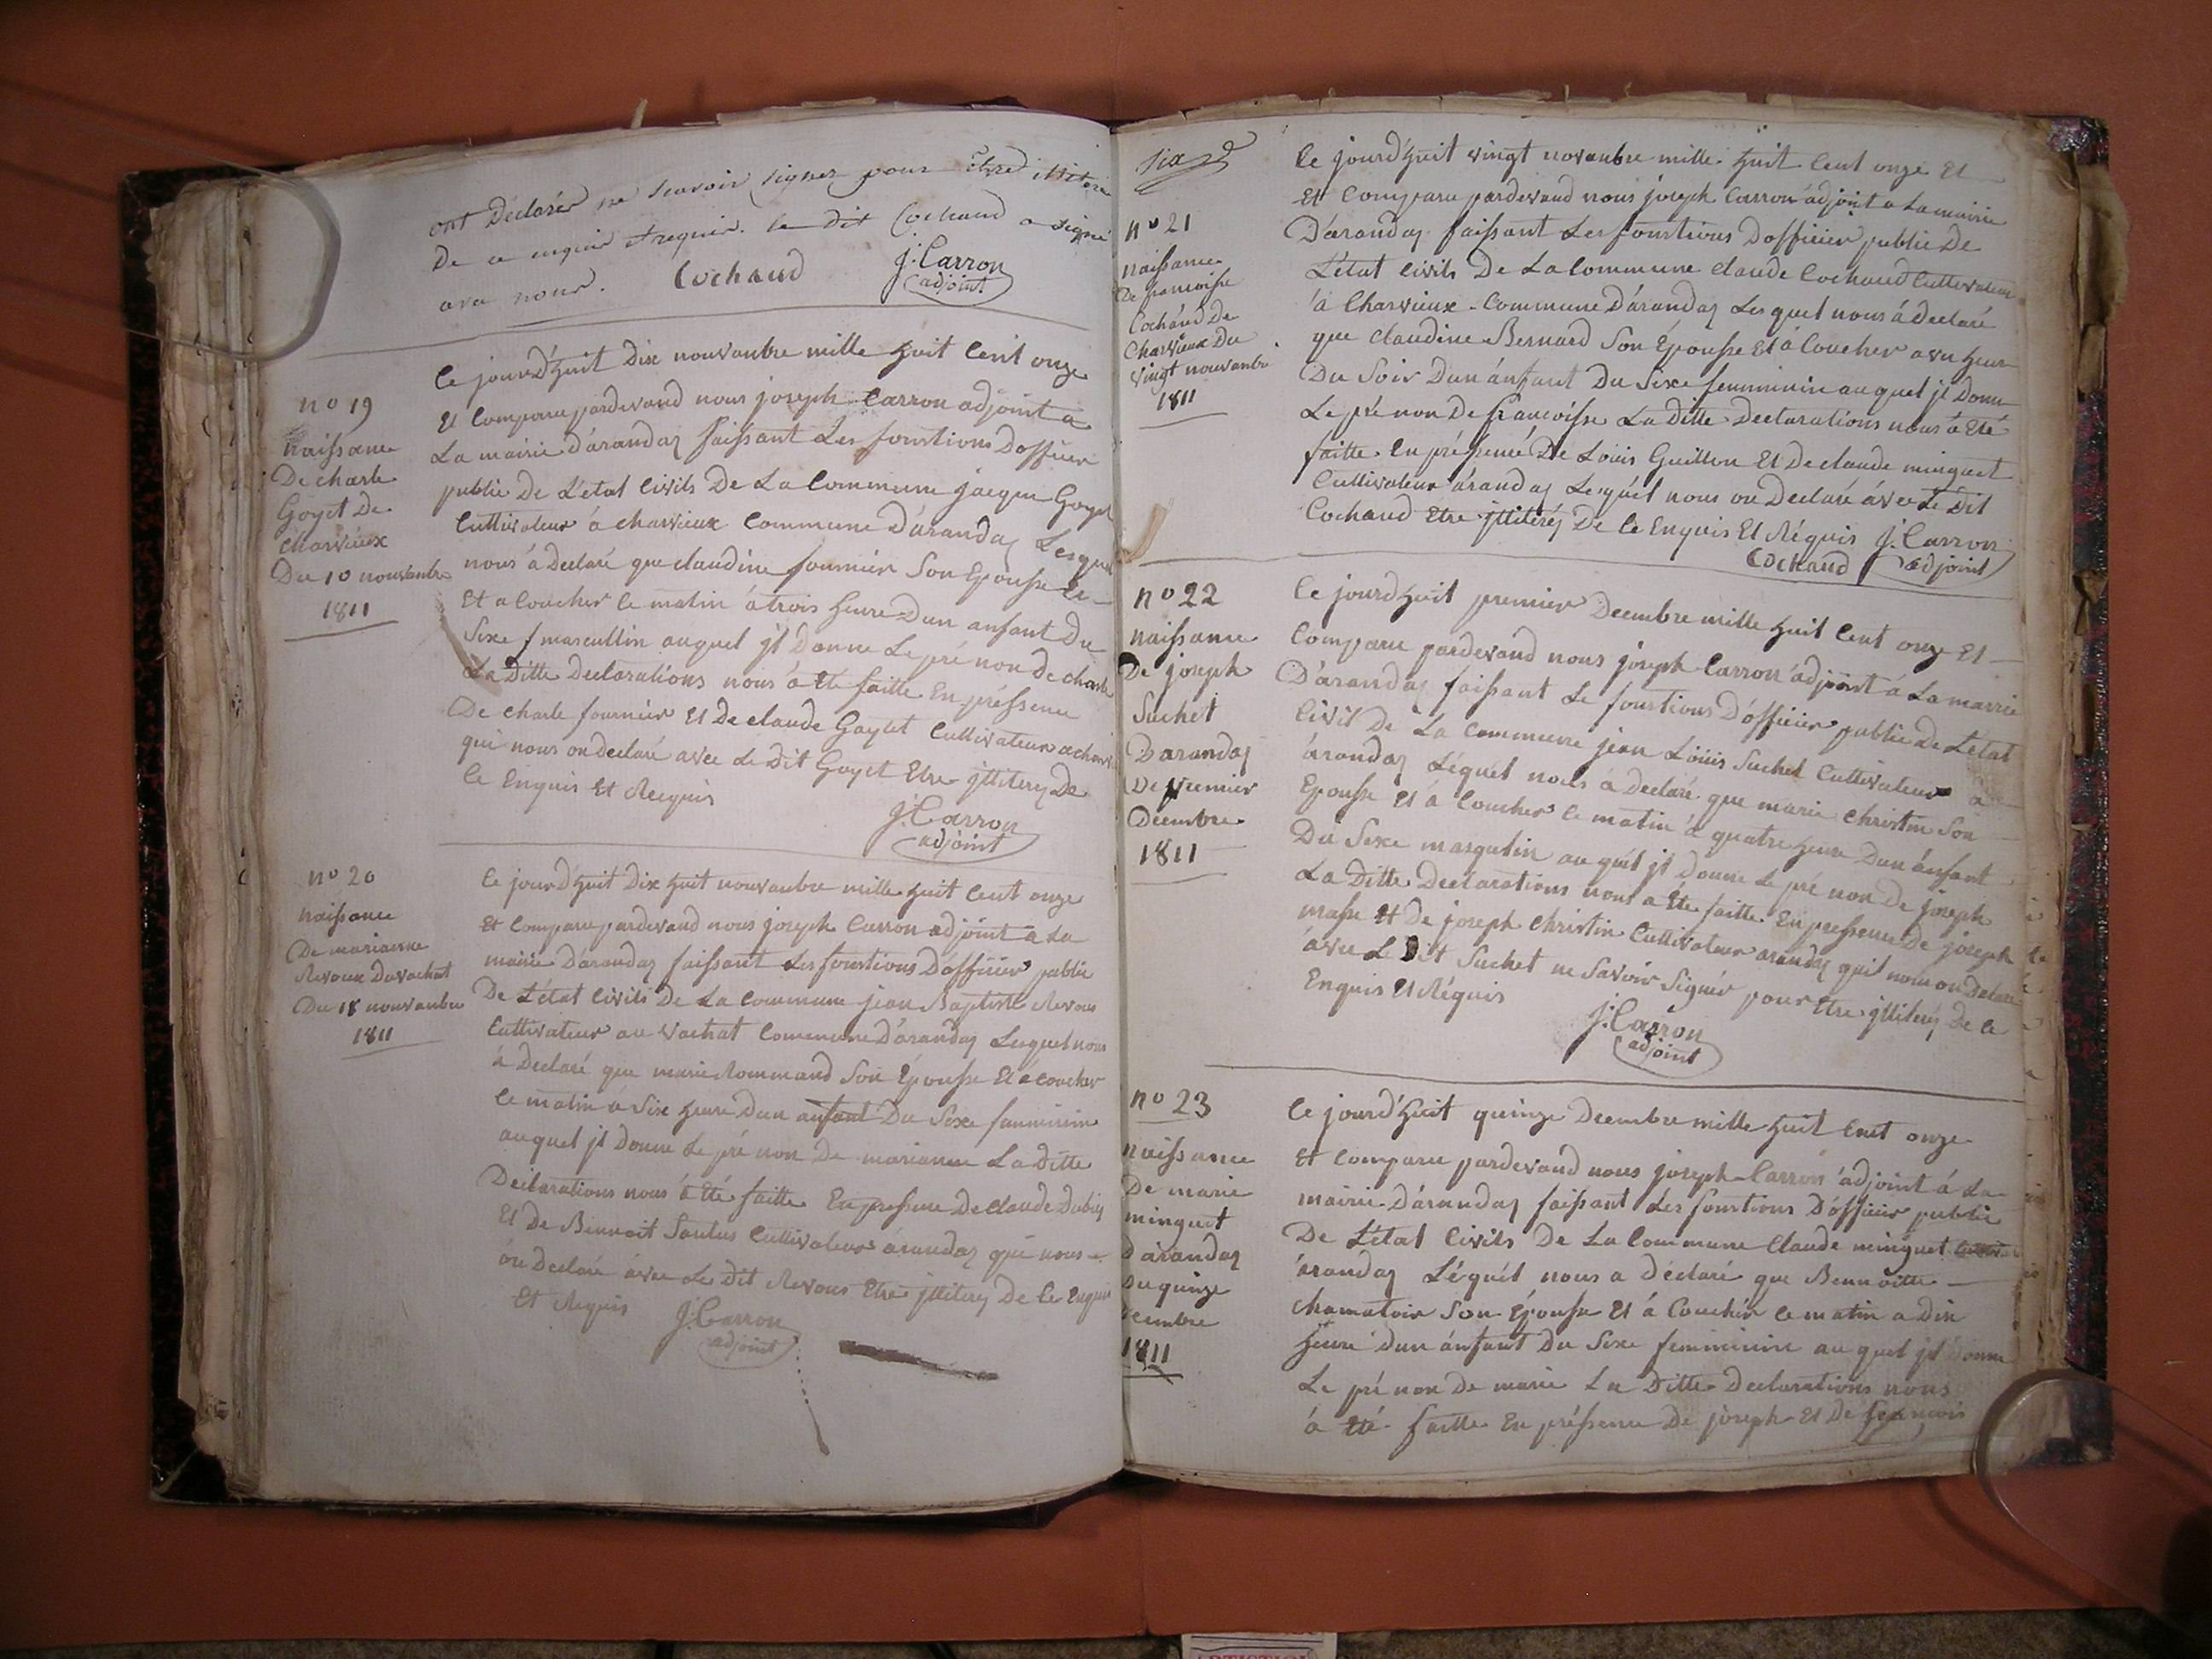 ont Déclarér ne scavoir signer pour être illitéré
De ce enquie et requir. le dit Cochaud a signé
avec nous.
Cochaud
J. Carron
adjoint
no 19
naissance
De charle
Goyet De
charvieux
Du 10 nouvanbre
1811
Ce jourd'huit Dix nouvanbre mille huit Cent onze
Et Comparu pardevand nous joseph Carron adjoint a
La mairie d'arandaz faissant Les fonstions Doffiier
public De L'etat Civils De La Commune jacque Goyet
Cultivateur á charvieux Commune D'arandaz Lesquel
nous á Declaré que claudine fournier Son Epousse
Et a Coucher Ce matin á trois heure Dun anfant Du
Sixe masculin auquel jl Donne Le pré non de charle
La Ditte Declarations nous á Eté faitte En préssence
De charle fournier Et De claude Goyet Cultivateur
qui nous on declaré avec Le Dit Goyet Etre jlliterez De
Ce Enquis Et Requis
J. Carron
adjoint
no 20
naissance
De marianne
Revoux Duvachat
Du 18 nouvanbre
1811
Ce jourd'huit Dix huit nouvanbre mille huit Cent onze
Et Comparu pardevand nous joseph Carron adjoint a La
mairie D'arandaz faissant Les fonstions D'offiier public
De L'état Civils De La Commune jean Baptiste Revoux
Cultivateur au Vachat Commune D'arandaz Lesquel nous
á Declaré que marie Rommand Son Épousse Et á coucher
Ce matin á Six heure Dun anfant Du Sexe fanminin
auquel jl Donne Le pré non De marianne La Ditte
Déclarations nous á Eté faitte En pressence De claude
Et De Bennoit Saulus Cultivateur árandaz qui nous
on Declaré ávec Le Dit Revoux Etre jlliterez De Ce Enquis
Et Requis
J. Carron
adjoint
six
no 21
naissance
De francoisse
Cochaud De
Charvieux Du
vingt nouvanbre
1811
Ce jourd'huit vingt novanbre mille huit Cent onze Et
Et Comparu pardevand nous joseph Carron adjoint a La mairie
D'arandaz faissant Les fonstions Doffiier public De
L'état Civils De La Commune claude Cochaud Cultivateur
'á Charvieux Commune D'árandaz Lesquel nous á Declaré
que claudine Bernard Son Épousse Et á Coucher a heur
Du Soir Dun ánfant Du Sixe femminin auquel jl Donne
Le pré non De francoisse La Ditte Declarations nous á Eté
faitte En préssence De Louis Guillon Et De claude minguet
Cultivateur árandaz Lesquél nous on Declaré ávec Le Dit
Cochaud Etre jlliteréz De Ce Enquis Et Réquis
J. Carron
Cochaud
adjoint
no 22
naissance
De joseph
Suchet
Darandaz
De premier
Decembre
1811
Ce jourd huit premier Decembre mille huit Cent onze Et
Comparu pardevand nous joseph Carron ádjoint á La marrie
D'arandaz faissant Le fonstions D'offiier public De L'état
Civil De La Commune jean Loüis Suchet Cultivateur a
árandaz Léquél nous á declaré que marie christin Son
Epousse Et á Coucher Ce matin á quatre heure Dun ánfant
Du Sixe masqulin au quél jl Donne Le pré non De joseph
La Ditte Declarations nous a Éte faitte En pressence De joseph
masse Et De joseph christin Cultivateur arandaz quil nous on Declare
ávec Le Dit Suchet ne Savoir Signér pour Etre jlliteréz De Ce
Enquis Et Réquis
J. Carron
adjoint
no 23
naissance
De marie
minguet
D'arandaz
Du quinze
Decembre
1811
Ce jourd'huit quinze Decembre mille huit Cent onze
Et Comparu pardevand nous joseph Carron ádjoint á La
mairie D'árandaz faissant Les fonstions D'óffiier public
De L'état Civils De La Commune Claude minguet
árandaz Léquél nous a déclaré que Bennoitte
chamatoir Son Épousse Et á Couchér Ce matin a Dix
heure dun ánfant Du Sexe femminin au quel jl donne
Le pré non De marie La Ditte Declarations nous
á Eté faitte En préssence De joseph Et De françois